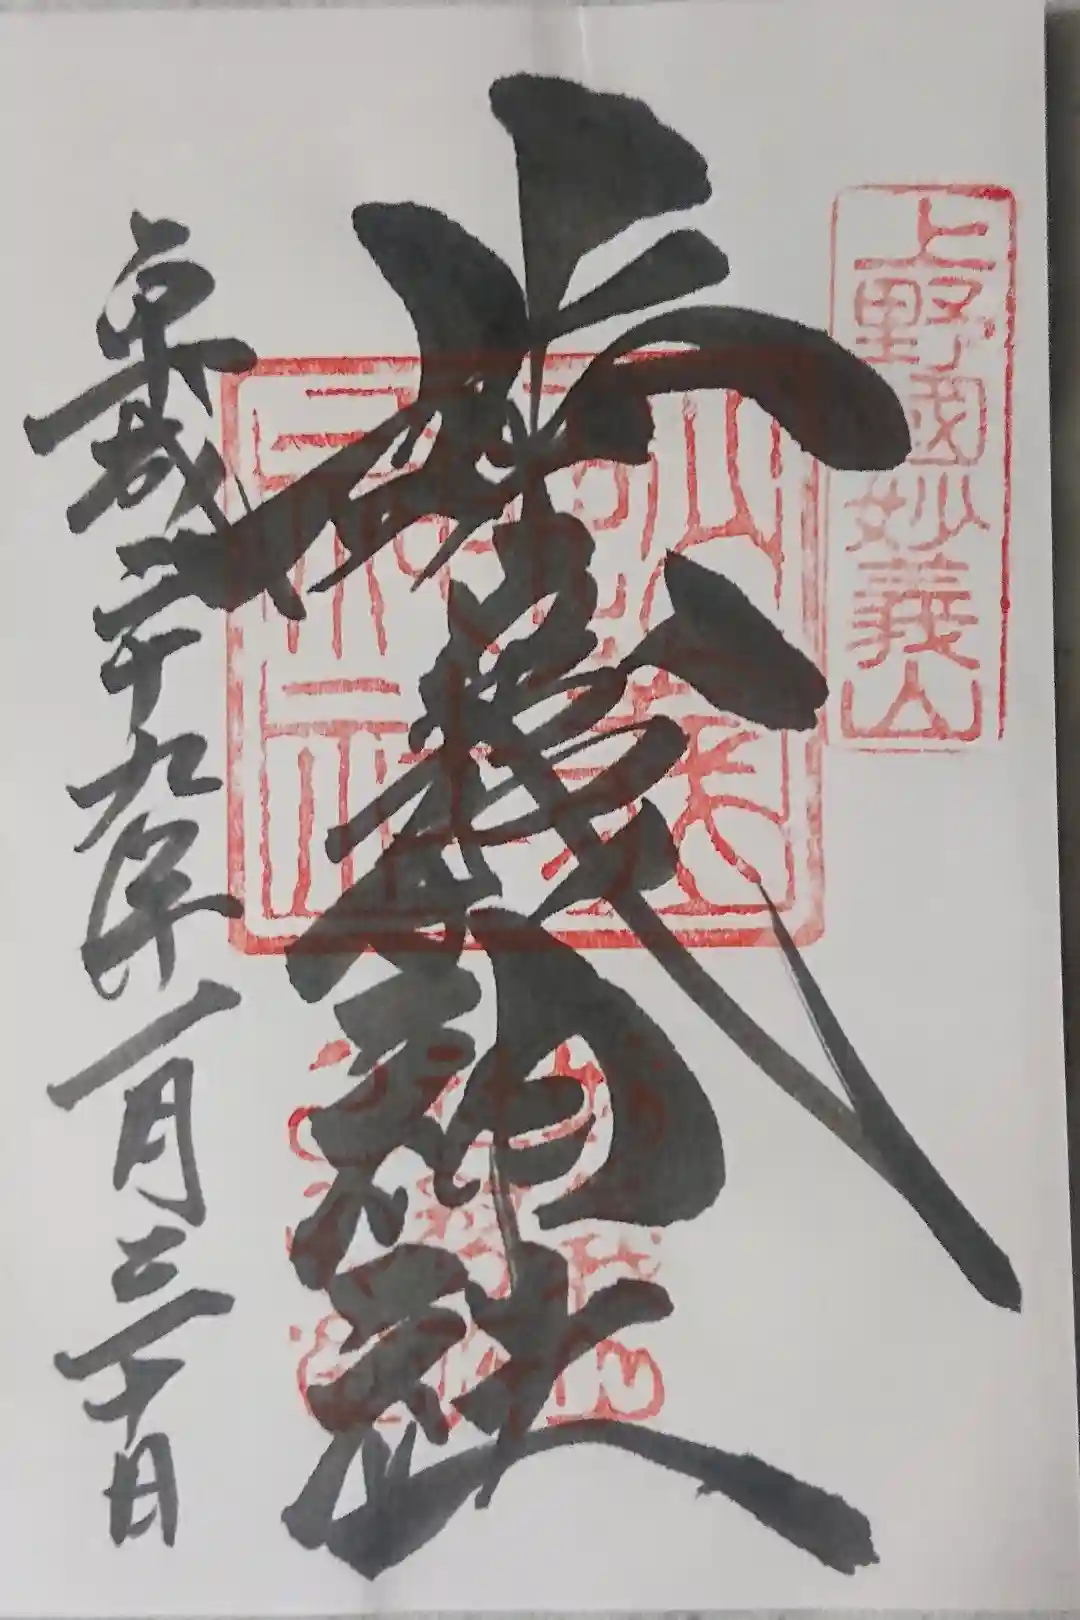 上野國妙義山
妙義神社
平成二十九年一月三十日